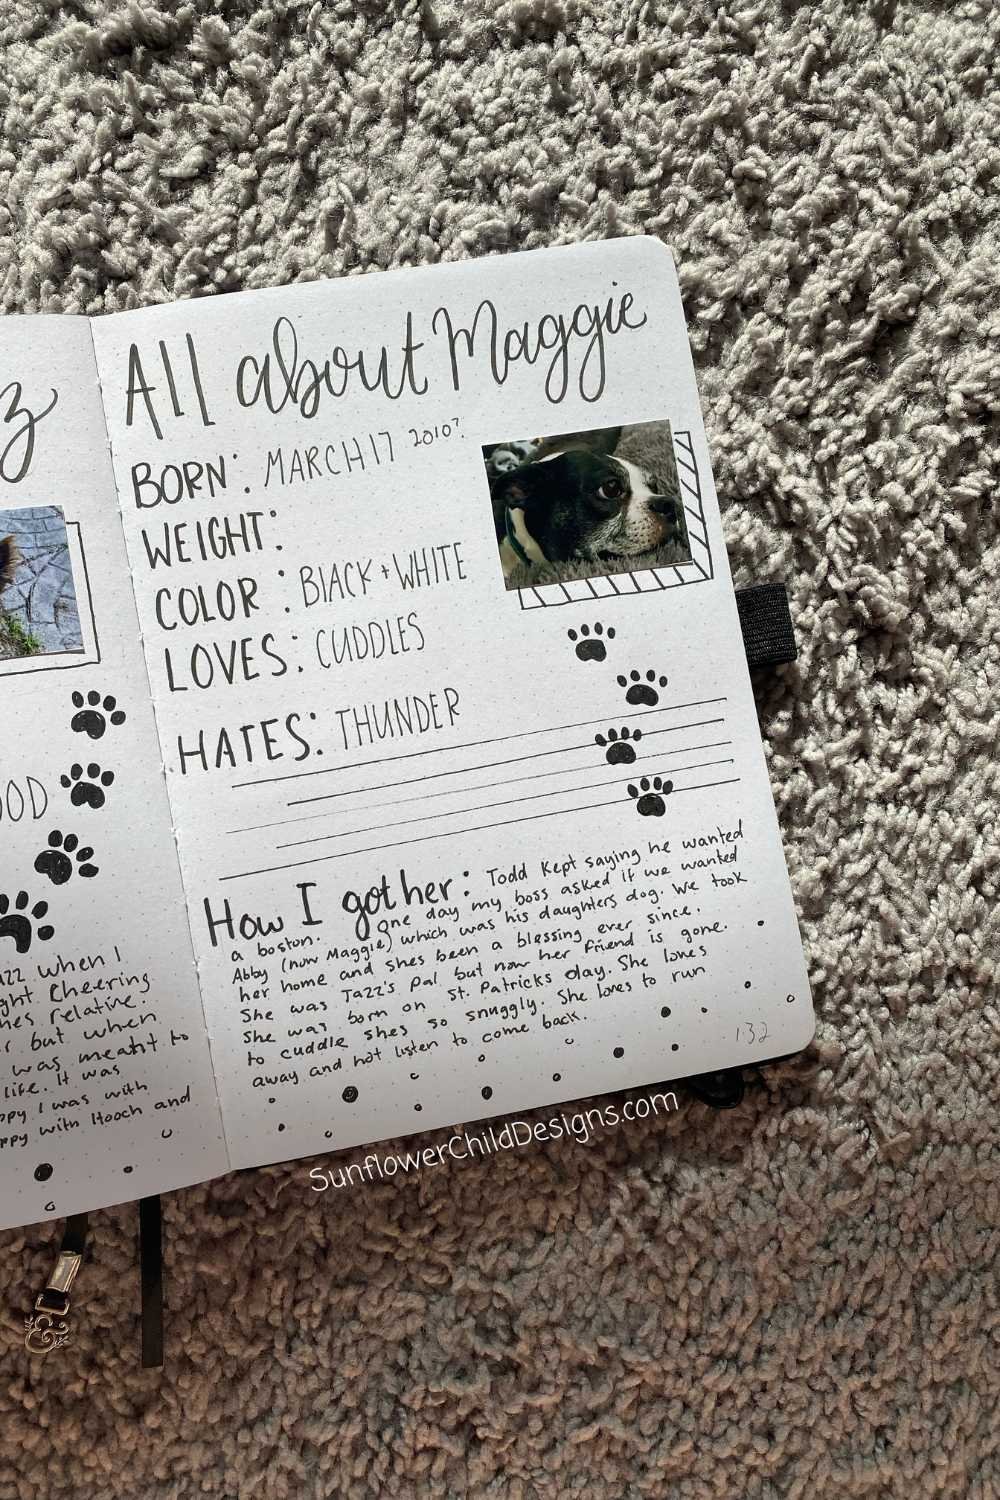 z
OOD
azz when I
ght. Cheering
hes relative.
r but when
was meant to
life. It was
ppy I was with
ppy with Hooch and
All about Maggie
BORN: MARCH 17 2010?
WEIGHT:
COLOR: BLACK + WHITE
LOVES: CUDDLES
HATES: THUNDER
How I got her: Todd kept saying he wanted
a boston. One day my boss asked if we wanted
Abby (now Maggie) which was his daughters dog. We took
her home and shes been a blessing ever since.
She was Tazz's pal but now her friend is gone.
She was born on St. Patricks day. She loves
to cuddle shes so snuggly. She loves to run
away and not listen to come back.
132
SunflowerChildDesigns.com